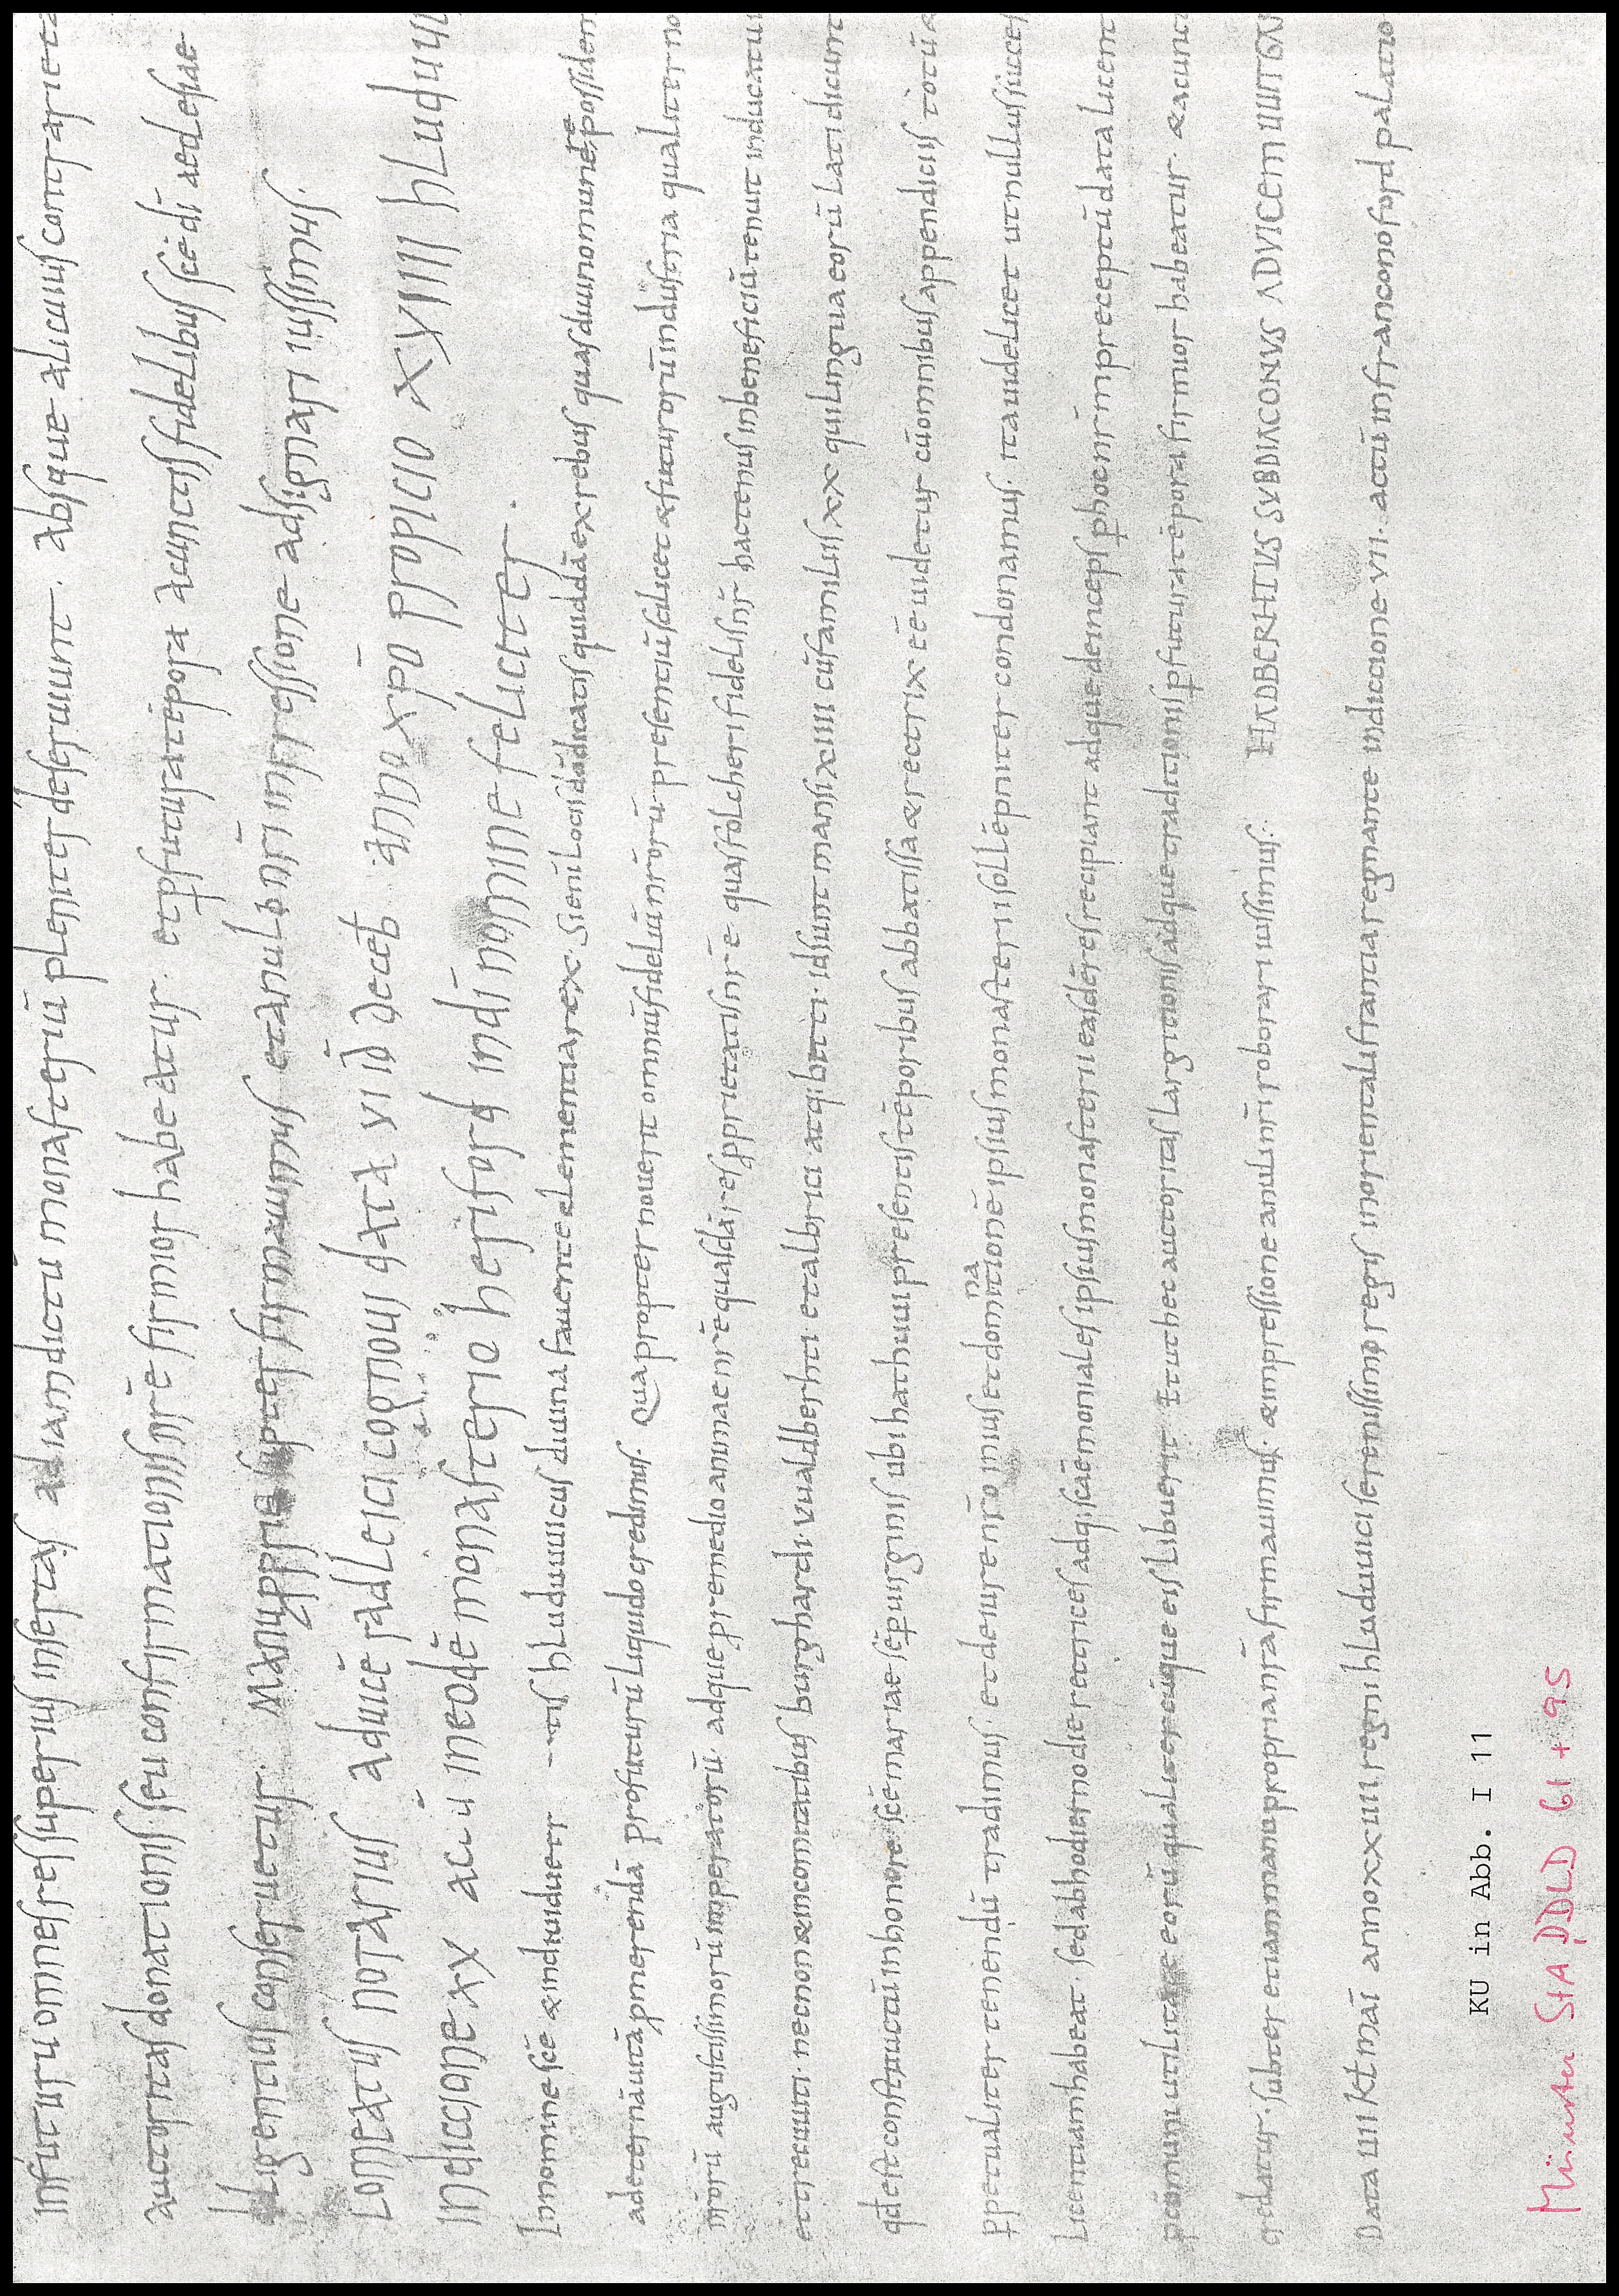 infuturu omnes res superius insertas ad iam dictū monasteriū pleniter deseruiant. absque alicuius contrarieta
auctoritas donationis seu confirmationis nr̄e firmior habeatur. et p̱ futura tēpora a cunctis fidelibus sc̄e dī aeclesiae
diligentius conseruetur. manu ppria subter firmauimus et anuli nr̄i inpressione adsignari iussimus.
comeatus notarius aduicē radleici cognoui data VI id deceb anno xp̄o propicio XVIIII hludui
indiccione XV actū in eodē monasterio heriford in dī nomine feliciter.
In nomine sc̄e & indiuiduae hluduuuicus diuina fauente clementia rex. Si enī locis dō dicatis quiddā ex rebus quas diuino munere possidem
ad eternā uitā pmerendā profuturū liquido credimus. Quapropter nouerit omniū fideliū nr̄orū presentiū scilicet & futurorū industria qualiter no
mr̄orū augustissimorū imperatorū adque p remedio animae nr̄e quasdā res pprietatis nr̄e quas folcheri fidelis nr̄ hactenus in beneficiū tenuit in ducatu
et grecuuiti necnon & in comitatibus burghardi. vualdberhti. et albrici atq; bitti. id sunt mansi XIIII cū familiis XX qui lingua eorū lati dicunt
qd est constructū in honore sc̄e mariae sēp uirginis ubi hathuui presentis tēporibus abbatissa & rectrix eē uidetur cū omnibus appendiciis totū &
ppetualiter tenendū tradimus et de iure nr̄o in ius et dominationē ipsius monasterii sollēpniter condonamus. ita uidelicet ut nullus succes
licentiam habeat. sed ab hodierno die rectrices adq; scāemoniales ipsius monasterii easdē res recipiant adque deinceps p hoc nr̄ī preceptū data licent
pcōmuni utilitate eorū qualitercūque eis libuerit Et ut hec auctoritas largitionis adque traditionis p futura tēpora firmior habeatur. & a cunc
credatur. subter etiam manu propria nr̄a firmauimus. & impressione anuli nr̄i roborari iussimus. HADBERHTUS SUBDIACONUS ADVICEM UUITGA
Data IIII kt̄ mai anno XXIIII regni hluduuici serenissimo regis in orientali francia regnante indiccione VII. actū in franconoford palatio
KU in Abb. I 11
Münster StA DDLD 61 + 95